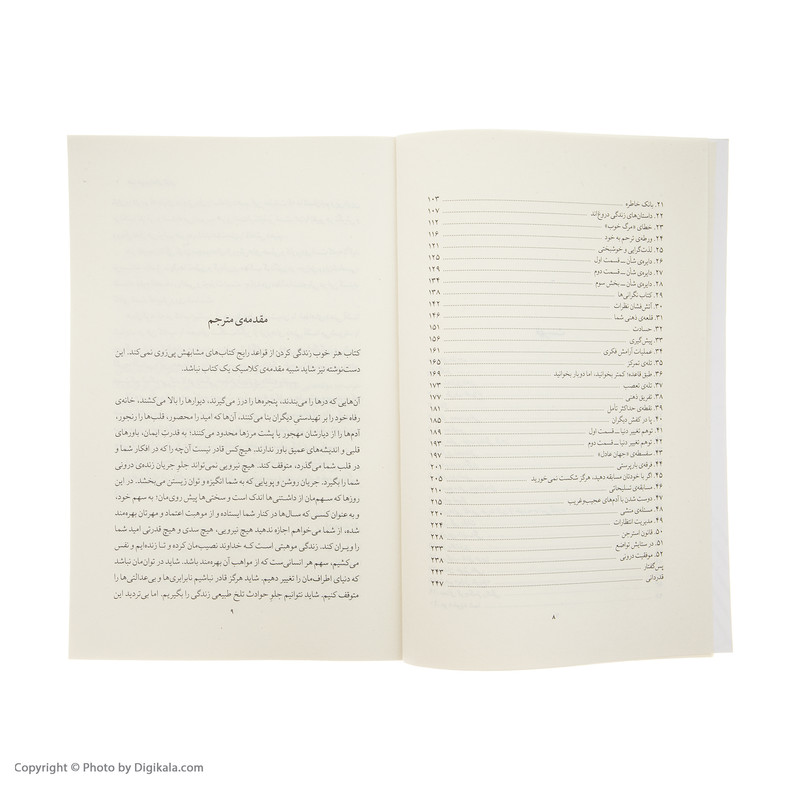 ۲۱. بانک خاطره ۱۰۳
۲۲. داستان‌های زندگی دروغ‌اند ۱۰۷
۲۳. خطای «مرگ خوب» ۱۱۲
۲۴. ورطه‌ی ترحم به خود ۱۱۶
۲۵. لذت‌گرایی و خوشبختی ۱۲۱
۲۶. دایره‌ی شأن ــ قسمت اول ۱۲۵
۲۷. دایره‌ی شأن ــ قسمت دوم ۱۲۹
۲۸. دایره‌ی شأن ــ بخش سوم ۱۳۴
۲۹. کتاب نگرانی‌ها ۱۳۸
۳۰. آتش‌فشان نظرات ۱۴۲
۳۱. قلعه‌ی ذهنی شما ۱۴۶
۳۲. حسادت ۱۵۱
۳۳. پیش‌گیری ۱۵۶
۳۴. عملیات آرامش فکری ۱۶۱
۳۵. تله‌ی تمرکز ۱۶۵
۳۶. طبق قاعده؛ کمتر بخوانید، اما دوبار بخوانید ۱۶۹
۳۷. تله‌ی تعصب ۱۷۳
۳۸. تفریق ذهنی ۱۷۷
۳۹. نقطه‌ی حداکثر تأمل ۱۸۱
۴۰. پا در کفش دیگران ۱۸۵
۴۱. توهم تغییر دنیا ــ قسمت اول ۱۸۹
۴۲. توهم تغییر دنیا ــ قسمت دوم ۱۹۳
۴۳. سفسطه‌ی «جهان عادل» ۱۹۷
۴۴. فرقه‌ی باربرستی ۲۰۱
۴۵. اگر با خودتان مسابقه دهید، هرگز شکست نمی‌خورید ۲۰۵
۴۶. مسابقه‌ی تسلیحاتی ۲۱۰
۴۷. دوست شدن با آدم‌های عجیب‌وغریب ۲۱۵
۴۸. مسئله‌ی منشی ۲۲۰
۴۹. مدیریت انتظارات ۲۲۴
۵۰. قانون استرجن ۲۲۸
۵۱. در ستایش تواضع ۲۳۳
۵۲. موفقیت درونی ۲۳۸
پس‌گفتار ۲۴۳
قدردانی ۲۴۷
۸
مقدمه‌ی مترجم
کتاب هنر خوب زندگی کردن از قواعد رایج کتاب‌های مشابهش پی‌روی نمی‌کند. این
دست‌نوشته نیز شاید شبیه مقدمه‌ی کلاسیک یک کتاب نباشد.
آن‌هایی که درها را می‌بندند، پنجره‌ها را درز می‌گیرند، دیوارها را بالا می‌کشند، خانه‌ی
رفاه خود را بر تهیدستی دیگران بنا می‌کنند، آن‌ها که امید را محصور، قلب‌ها را رنجور،
آدم‌ها را از دیارشان مهجور یا پشت مرزها محدود می‌کنند؛ به قدرت ایمان، باورهای
قلبی و اندیشه‌های عمیق باور ندارند. هیچ‌کس قادر نیست آن‌چه را که در افکار شما و
در قلب شما می‌گذرد، متوقف کند. هیچ نیرویی نمی‌تواند جلو جریان زنده‌ی درونی
شما را بگیرد. جریان روشن و پویایی که به شما انگیزه و توان زیستن می‌بخشد. در این
روزها که سهم‌مان از داشتنی‌ها اندک است و سختی‌ها پیش روی‌مان؛ به سهم خود،
و به عنوان کسی که سال‌ها در کنار شما ایستاده و از موهبت اعتماد و مهرتان بهره‌مند
شده، از شما می‌خواهم اجازه ندهید هیچ نیرویی، هیچ سدی و هیچ قدرتی امید شما
را ویران کند. زندگی موهبتی است که خداوند نصیب‌مان کرده و تا زنده‌ایم و نفس
می‌کشیم، سهم هر انسانی‌ست که از مواهب آن بهره‌مند باشد. شاید در توان‌مان نباشد
که دنیای اطراف‌مان را تغییر دهیم. شاید هرگز قادر نباشیم نابرابری‌ها و بی‌عدالتی‌ها را
متوقف کنیم. شاید نتوانیم جلو حوادث تلخ طبیعی زندگی را بگیریم. اما بی‌تردید این
۹
Copyright © Photo by Digikala.com